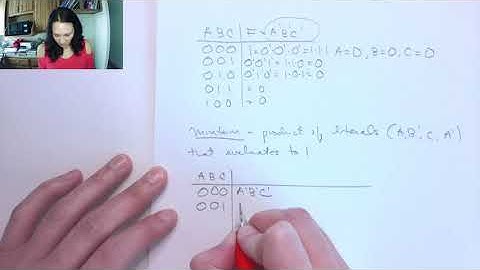 A B C F = A'B'C'
0 0 0 1 = 0'·0'·0' = 1·1·1 A=0, B=0, C=0
0 0 1 0'·0'·1' = 1·1·0 = 0
0 1 0 0'·1·0' = 1·0·1 = 0
0 1 1 = 0
1 0 0 = 0
Minterm = product of literals (A, B', C, A')
that evaluates to 1
A B C
0 0 0 A'B'C'
0 0 1